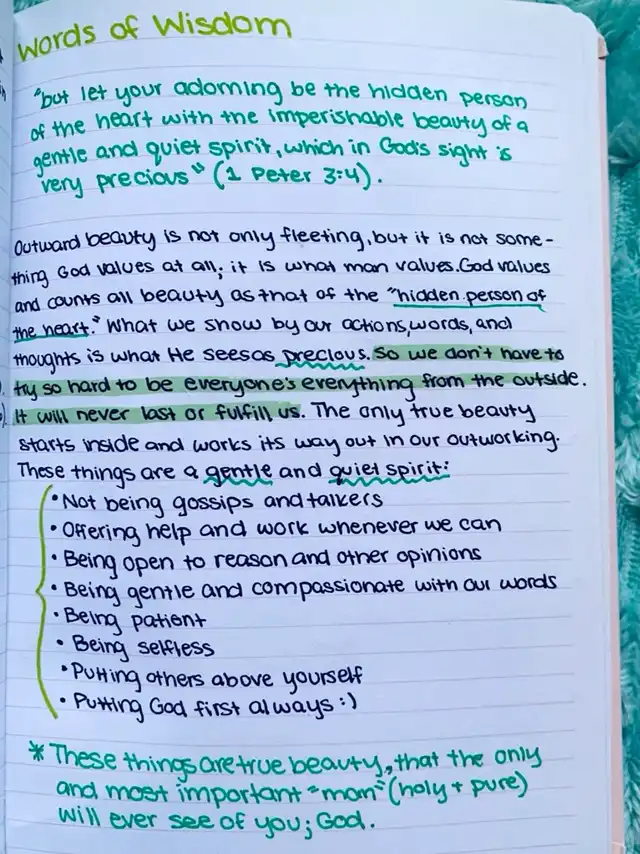 Words of Wisdom
"but let your adorning be the hidden person
of the heart with the imperishable beauty of a
gentle and quiet spirit, which in God's sight is
very precious" (1 Peter 3:4).
Outward beauty is not only fleeting, but it is not some-
thing God values at all; it is what man values. God values
and counts all beauty as that of the "hidden person of
the heart." What we show by our actions, words, and
thoughts is what He sees as precious. So we don't have to
try so hard to be everyone's everything from the outside.
It will never last or fulfill us. The only true beauty
starts inside and works its way out in our outworking.
These things are a gentle and quiet spirit:
• Not being gossips and talkers
• Offering help and work whenever we can
• Being open to reason and other opinions
• Being gentle and compassionate with our words
• Being patient
• Being selfless
• Putting others above yourself
• Putting God first always :)
* These things are true beauty, that the only
and most important "man" (holy + pure)
will ever see of you; God.